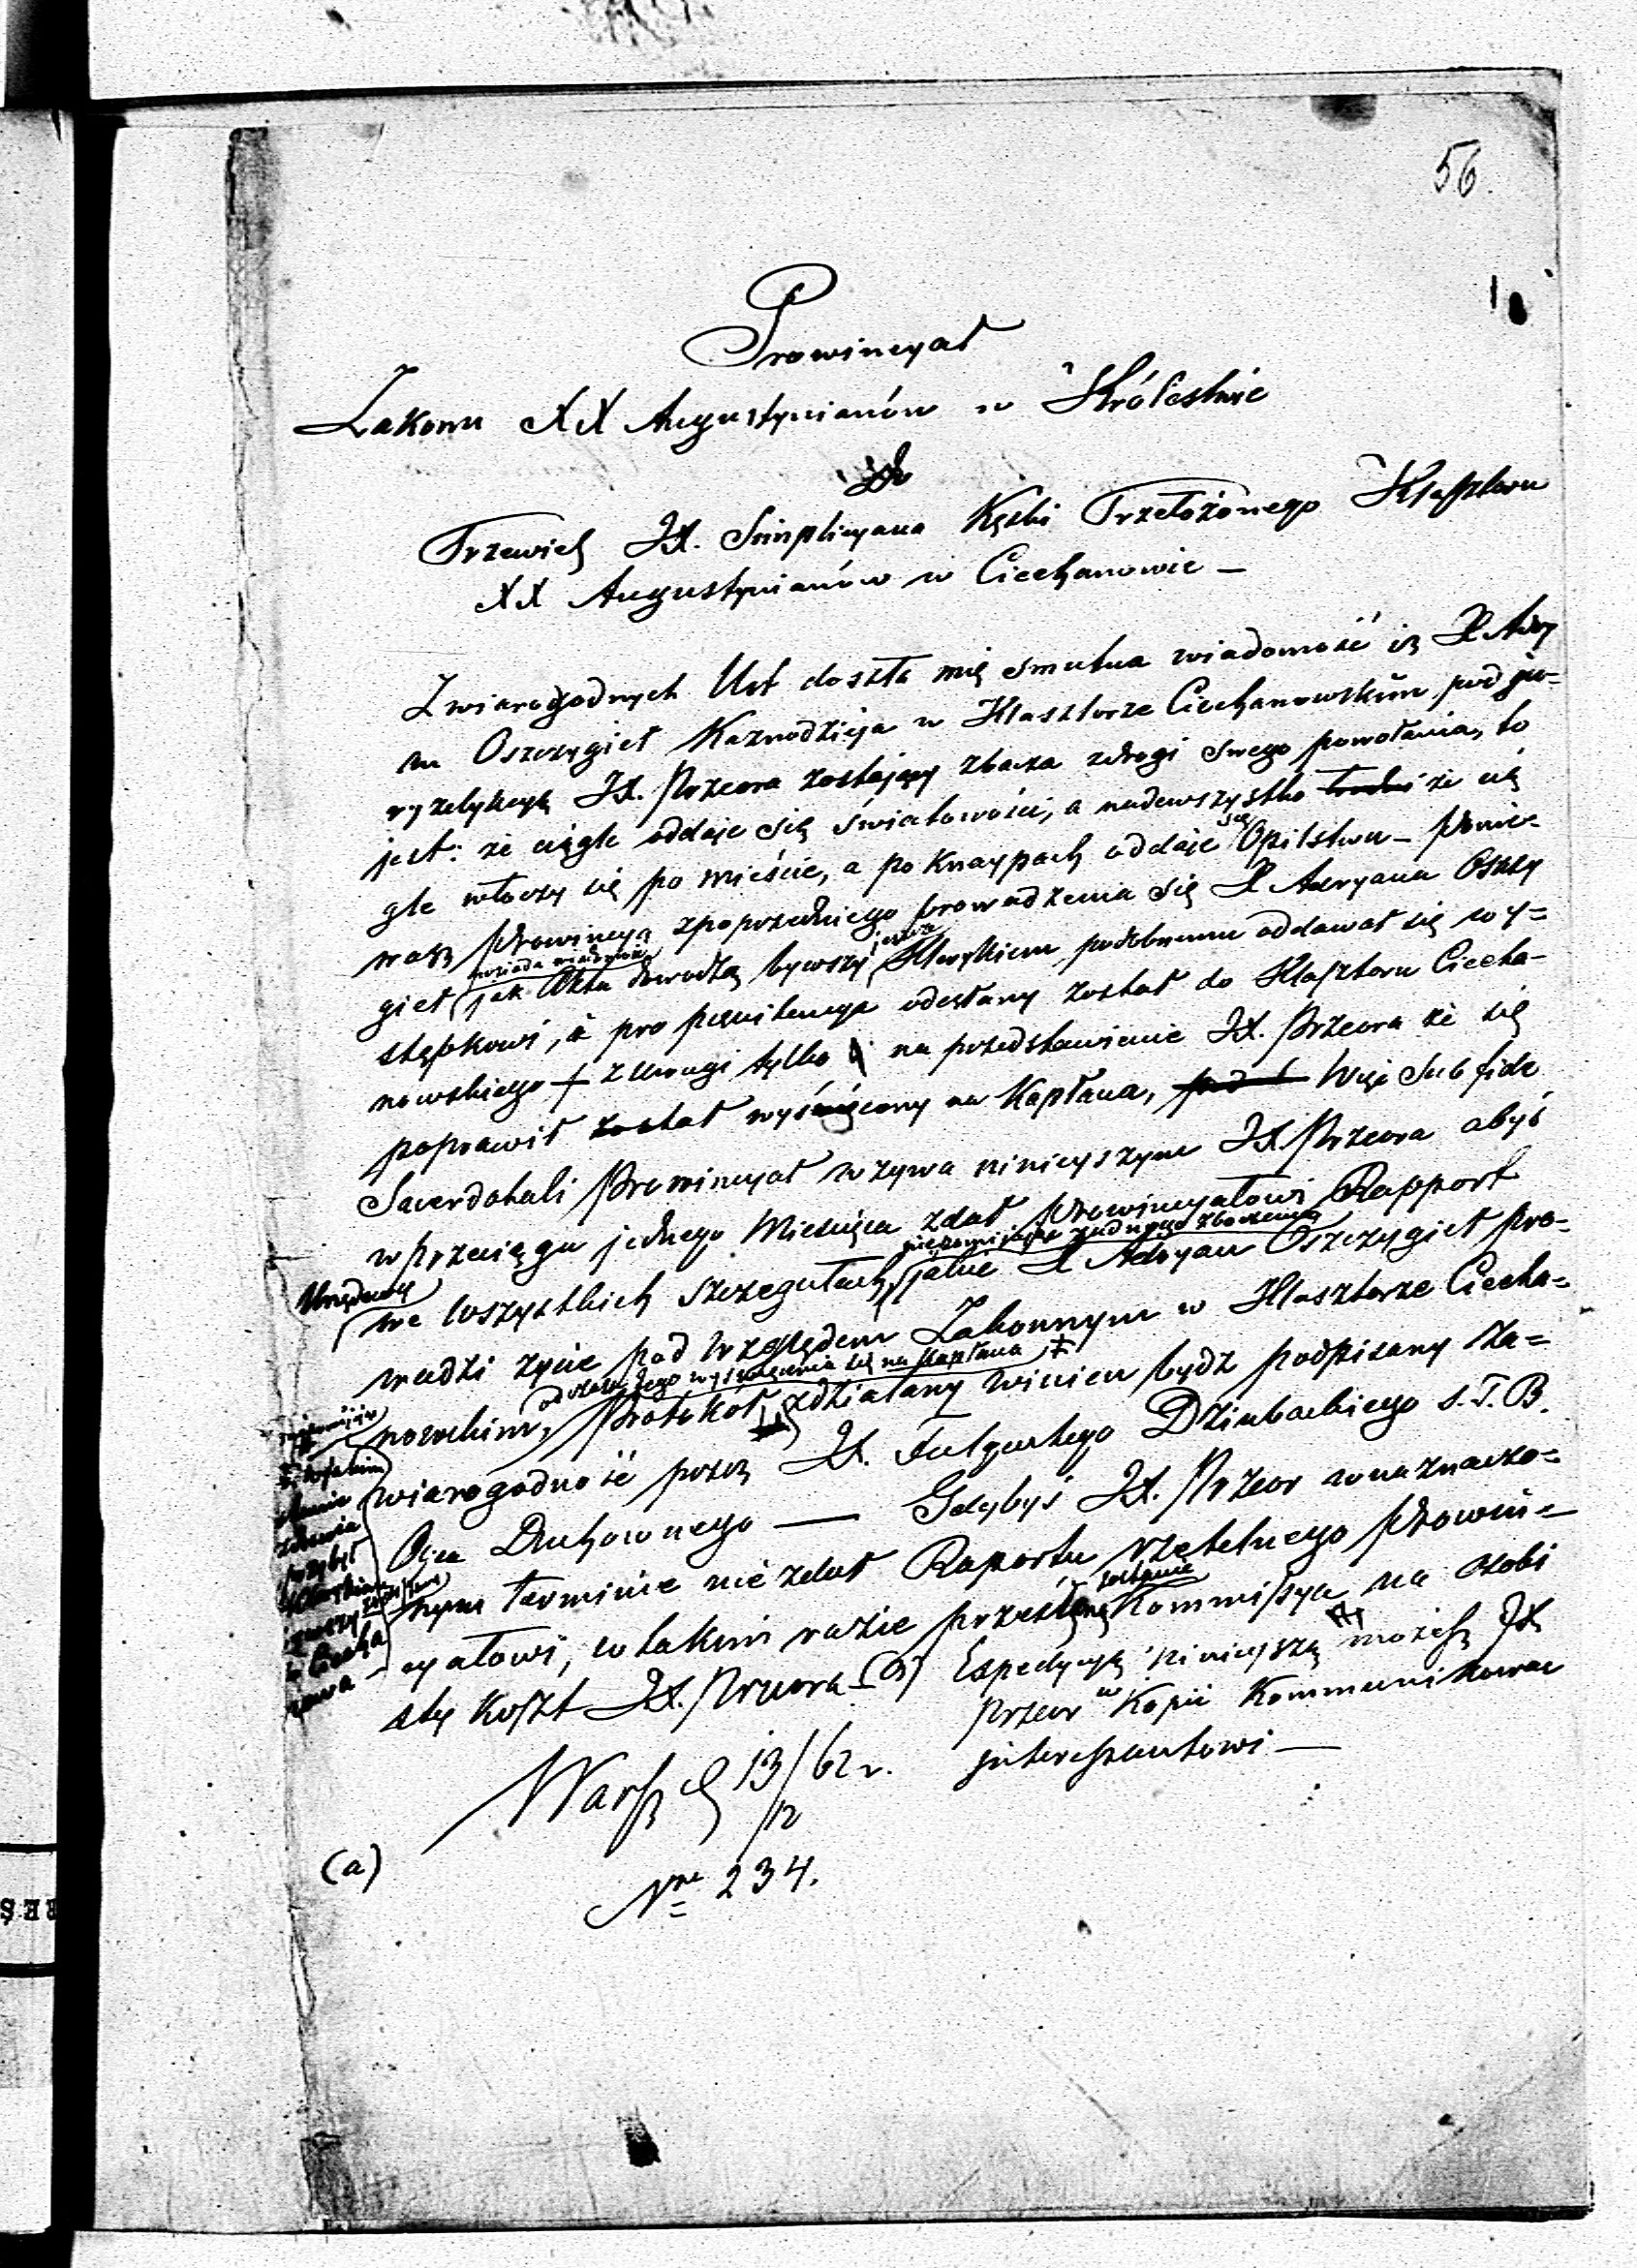 56.
Prowincyał
Zakonu XX Augustynianów w Królestwie
Do
Przewiel JX. Simplicyana Kęski Przełożonego Klasztoru
XX Augustynianów w Ciechanowie —
Z wiarogodnych Ust doszła mię smutna wiadomość iż X Adry
an Oszczygieł Kaznodzieja w Klasztorze Ciechanowskim pod ju-
ryzdykcyą JX. Przeora zostający zbacza z drogi swego powołania, to
jest: że ciągle oddaje się światowości, a nadewszystko że cią
gle włoczy się po mieście, a po Knaypach oddaje się Opilstwu — Ponie-
waż Prowincya z poprzedniego prowadzenia się X Adryana Oszczy
gieł posiada wiadomość jak Akta dowodzą bywszy jeszcze Klerykiem podobnemu oddawał się wy=
stępkowi, i pro penitencya odesłany został do Klasztoru Ciecha-
nowskiego + z uwagi tylko na przedstawienie JX. Przeora że się
poprawił został wyświęcony na Kapłana, Więc Sub fide
Sacerdotali Prowincyał wzywa niniejszym JX Przeora abyś
w przeciągu jednego Miesiąca zdał Prowincyałowi Rapport
Urzędowy
we wszystkich szczegułach niepomijając żadnego zboczenia jakie X Adryan Oszczygieł pro-
wadzi życie pod względem Zakonnym w Klasztorze Ciecha=
nowskim, od czasu jego wyświęcenia się na Kapłana ‡ Protokół zdziałany winien bydz podpisany za=
wiarogodność przez JX. Fulgentego Dziubackiego S.T.B.
Ojca Duchownego — Gdybyś JX. Przeor w naznaczo=
nym terminie nie zdał Raportu rzetelnego Prowin=
cyałowi, w takim razie zesłanie Kommissya na osobi
sty koszt JX. Przeora (a) Expedycyą niniejszą możesz JX
Przeor w Kopii Kommunikować
interessantowi —
zdrowia
przybył
w Ciecha
Warsz d 13/62 r.
12
Nro 234.
(a)